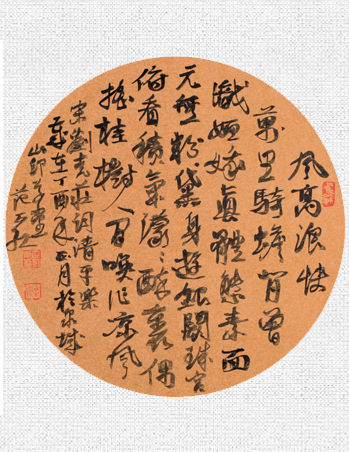 風高浪快
萬里騎蟾背曾
識姮娥真體態素面
元無粉黛身遊銀闕珠宮
俯看積氣濛〻醉裏偶
搖桂樹人間喚作涼風
宋劉克莊詞清平樂
歲在丁酉年正月於泉城